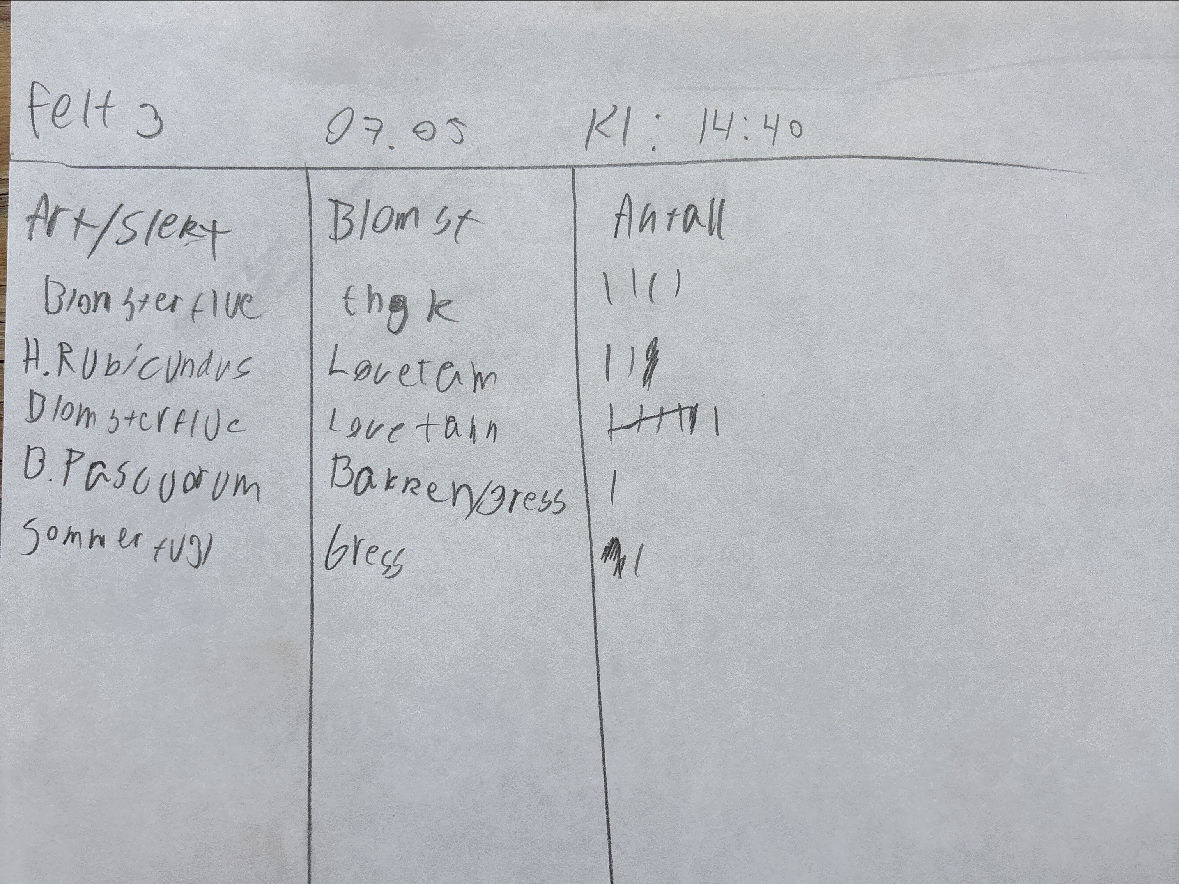 Felt 3 07.05 Kl: 14:40
Art/Slekt Blomst Antall
Blomsterflue ||||
H. Rubicundus Løvetann |||
Blomsterflue Løvetann
B. Pascuorum Bakken/gress |
Sommerfugl Gress |